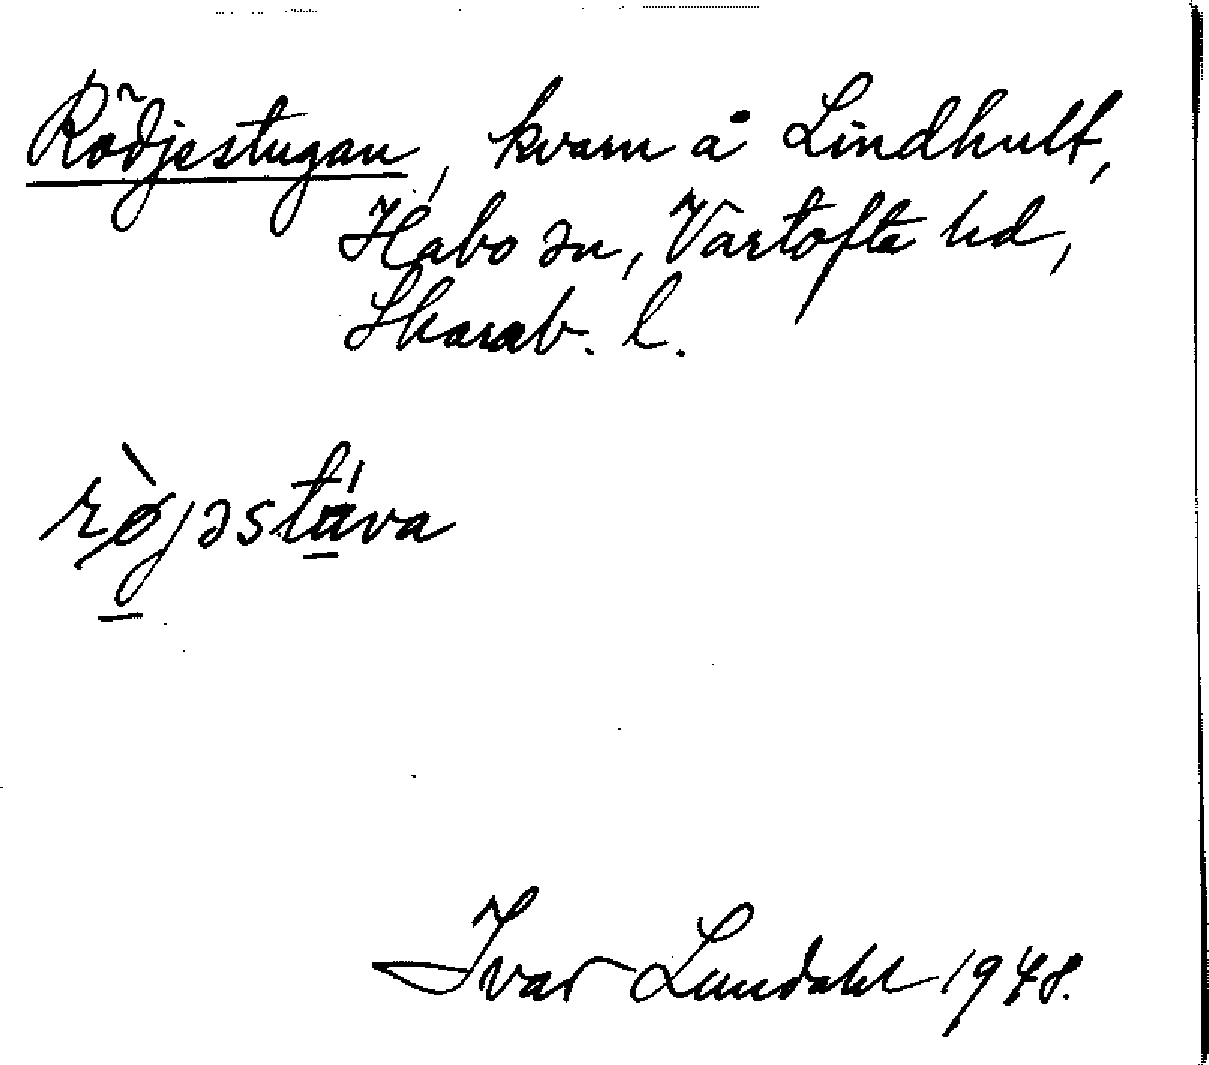 Rödjestugan, kvarn å Lindhult,
Habo sn, Vartofta hd,
Skarab. l.
rø̀jəstúva
Ivar Lundahl 1948.